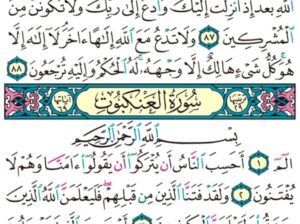 ٱللَّهِ بَعْدَ إِذْ أُنزِلَتْ إِلَيْكَ وَٱدْعُ إِلَىٰ رَبِّكَ وَلَا تَكُونَنَّ مِنَ
ٱلْمُشْرِكِينَ ٨٧ وَلَا تَدْعُ مَعَ ٱللَّهِ إِلَٰهًا ءَاخَرَ لَآ إِلَٰهَ إِلَّا
هُوَ كُلُّ شَىْءٍ هَالِكٌ إِلَّا وَجْهَهُۥ لَهُ ٱلْحُكْمُ وَإِلَيْهِ تُرْجَعُونَ ٨٨
سُورَةُ الْعَنْكَبُوتِ
بِسْمِ ٱللَّهِ ٱلرَّحْمَٰنِ ٱلرَّحِيمِ
الٓمٓ ١ أَحَسِبَ ٱلنَّاسُ أَن يُتْرَكُوٓا۟ أَن يَقُولُوٓا۟ ءَامَنَّا وَهُمْ لَا
يُفْتَنُونَ ٢ وَلَقَدْ فَتَنَّا ٱلَّذِينَ مِن قَبْلِهِمْ فَلَيَعْلَمَنَّ ٱللَّهُ ٱلَّذِينَ